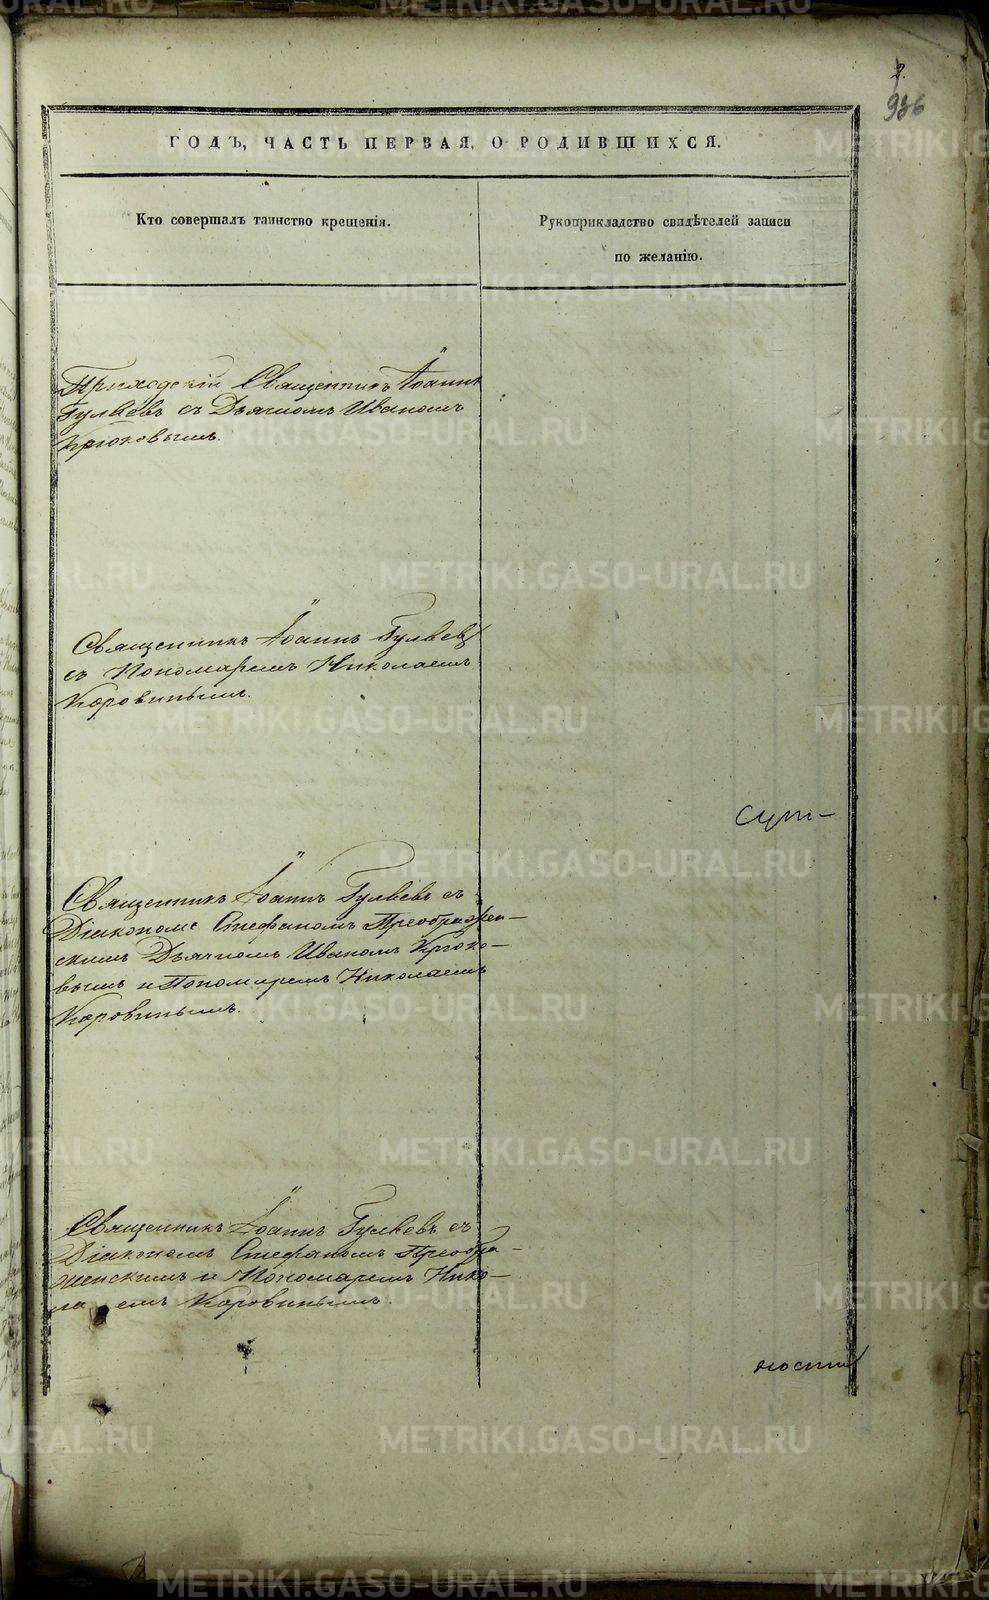 2.
936
ГОДЪ, ЧАСТЬ ПЕРВАЯ, О РОДИВШИХСЯ.
Кто совершалъ таинство крещенія.
Рукоприкладство свидѣтелей записи
по желанію.
Приходскій Священникъ Іоаннъ
Гуляевъ съ Дьячкомъ Иваномъ
Крюковымъ.
Священникъ Іоаннъ Гуляевъ
съ Пономаремъ Николаемъ
Коровинымъ.
сут-
Священникъ Іоаннъ Гуляевъ съ
Діакономъ Стефаномъ Преображен-
скимъ Дьячкомъ Иваномъ Крюко-
вымъ и Пономаремъ Николаемъ
Коровинымъ.
Священникъ Іоаннъ Гуляевъ съ
Діакономъ Стефаномъ Преобра-
женскимъ и Пономаремъ Нико-
лаемъ Коровинымъ.
METRIKI.GASO-URAL.RU